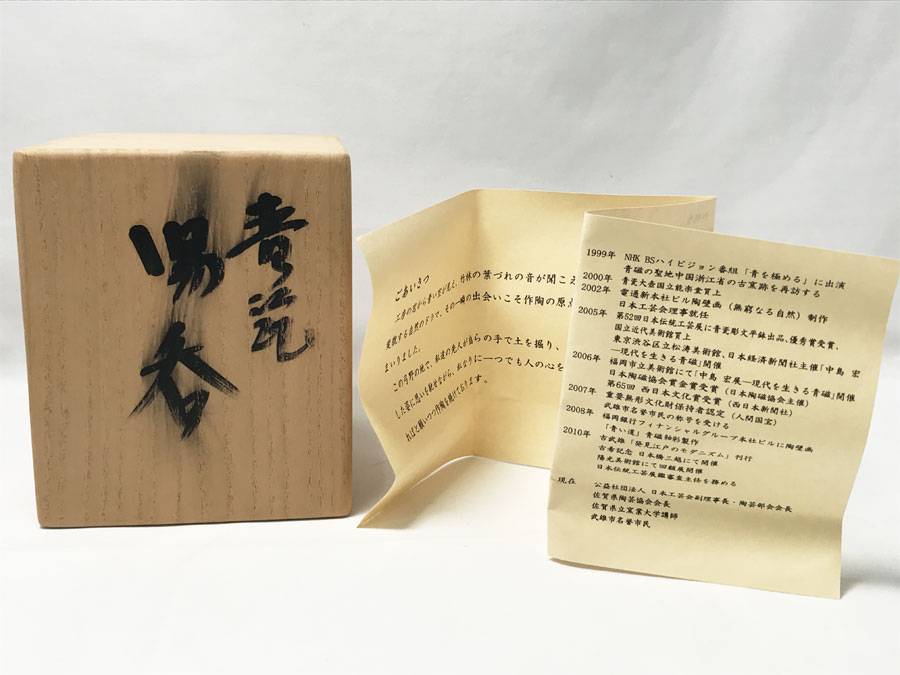 青瓷
湯呑
ごあいさつ
工房の窓から青い空が見え、竹林の葉づれの音が聞こえ
変数する自然のドラマ、その一瞬の出会いこそ作陶の原点
まいりました。
この弓野の地で、私達の先人が自らの手で土を掘り、
した姿に思いを馳せながら、私なりに一つでも人の心を
ればと願いつつ作陶を続けております。
1999年 NHK BSハイビジョン番組「青を極める」に出演
青磁の聖地中国浙江省の古窯跡を再訪する
2000年 青瓷大壺国立能楽堂買上
2002年 電通新本社ビル陶壁画(無窮なる自然)制作
日本工芸会理事就任
2005年 第52回日本伝統工芸展に青瓷彫文平鉢出品、優秀賞受賞、
国立近代美術館買上
東京渋谷区立松涛美術館、日本経済新聞社主催「中島 宏
―現代を生きる青磁」開催
2006年 福岡市立美術館にて「中島 宏展―現代を生きる青磁」開催
日本陶磁協会賞金賞受賞(日本陶磁協会主催)
2007年 第65回 西日本文化賞受賞(西日本新聞社)
重要無形文化財保持者認定(人間国宝)
2008年 武雄市名誉市民の称号を受ける
福岡銀行フィナンシャルグループ本社ビルに陶壁画
「青い道」青磁釉彩製作
2010年 古武雄「発見江戸のモダニズム」刊行
古希記念 日本橋三越にて開催
陽光美術館にて回顧展開催
日本伝統工芸展鑑審査主任を務める
現在 公益社団法人 日本工芸会副理事長・陶芸部会会長
佐賀県陶芸協会会長
佐賀県立窯業大学講師
武雄市名誉市民